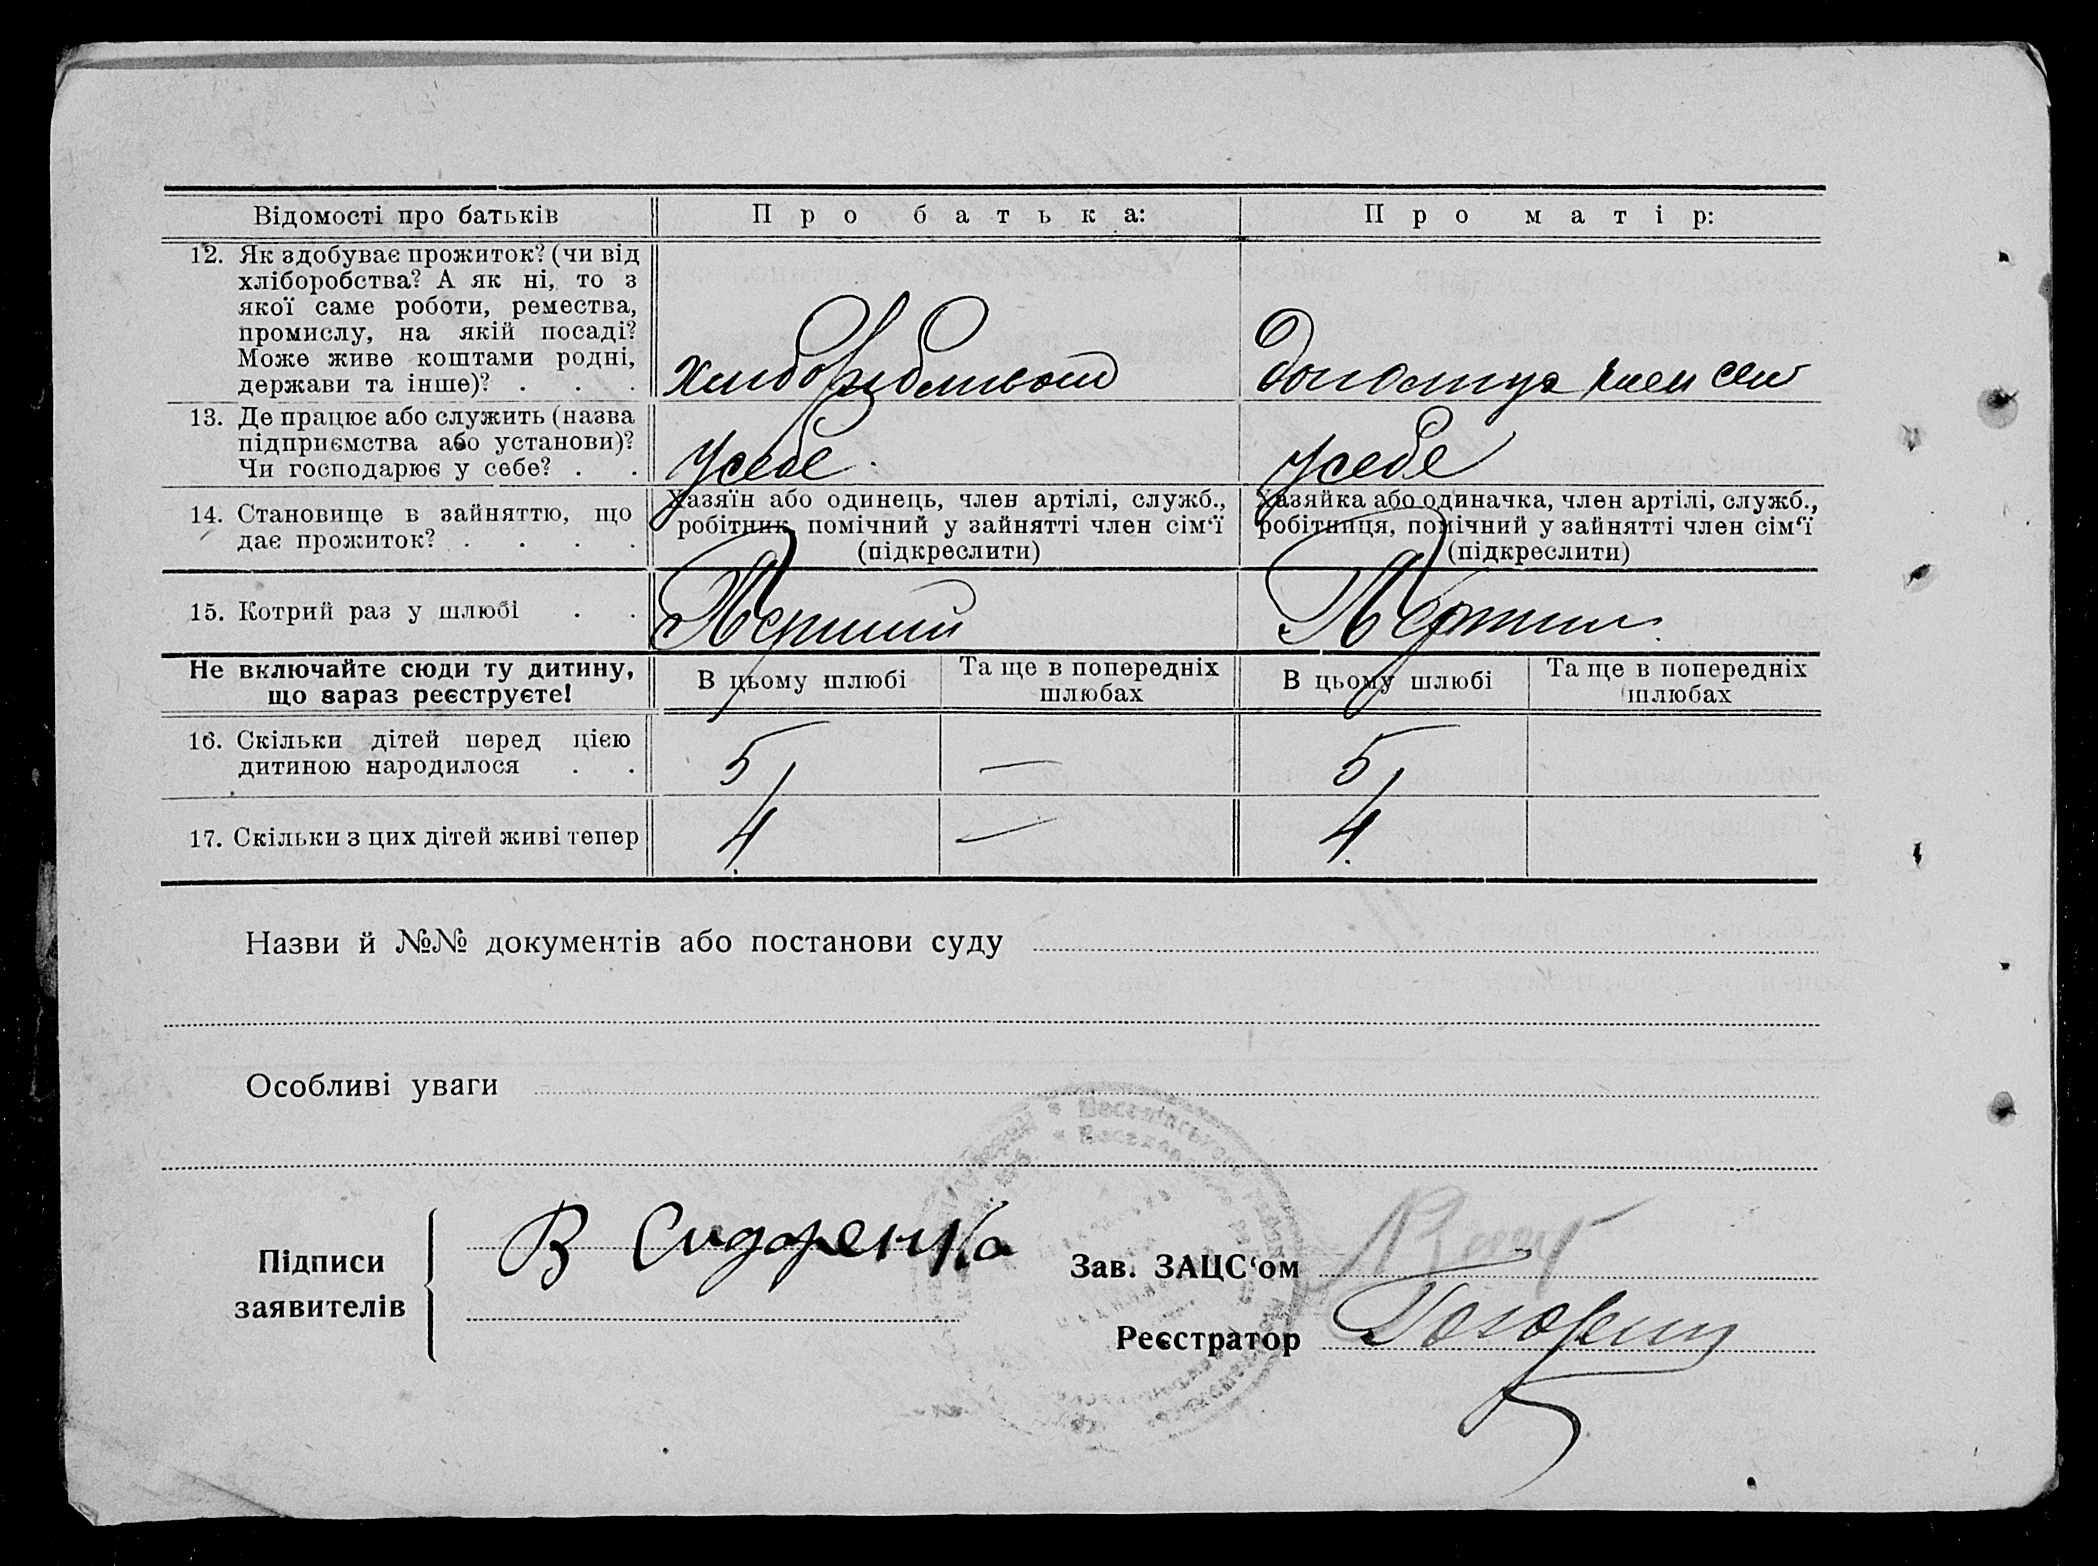 Відомості про батьків
Про батька:
Про матір:
12. Як здобуває прожиток? (чи від
хліборобства? А як ні, то з
якої саме роботи, ремества,
промислу, на якій посаді?
Може живе коштами родні,
держави та інше)? . . .
13. Де працює або служить (назва
підприємства або установи)?
Чи господарює у себе? . .
у себе
у себе
14. Становище в зайняттю, що
дає прожиток? . . . .
Хазяїн або одинець, член артілі, служб.,
робітник, помічний у зайнятті член сім'ї
(підкреслити)
Хазяйка або одиначка, член артілі, служб.,
робітниця, помічний у зайнятті член сім'ї
(підкреслити)
15. Котрий раз у шлюбі . .
Перший
Не включайте сюди ту дитину,
що зараз реєструєте!
В цьому шлюбі
Та ще в попередніх
шлюбах
В цьому шлюбі
Та ще в попередніх
шлюбах
16. Скільки дітей перед цією
дитиною народилося . .
5
—
5
17. Скільки з цих дітей живі тепер
4
—
4
Назви й №№ документів або постанови суду
Особливі уваги
Підписи
заявителів
В Сидоренко
Зав. ЗАЦС'ом
Реєстратор